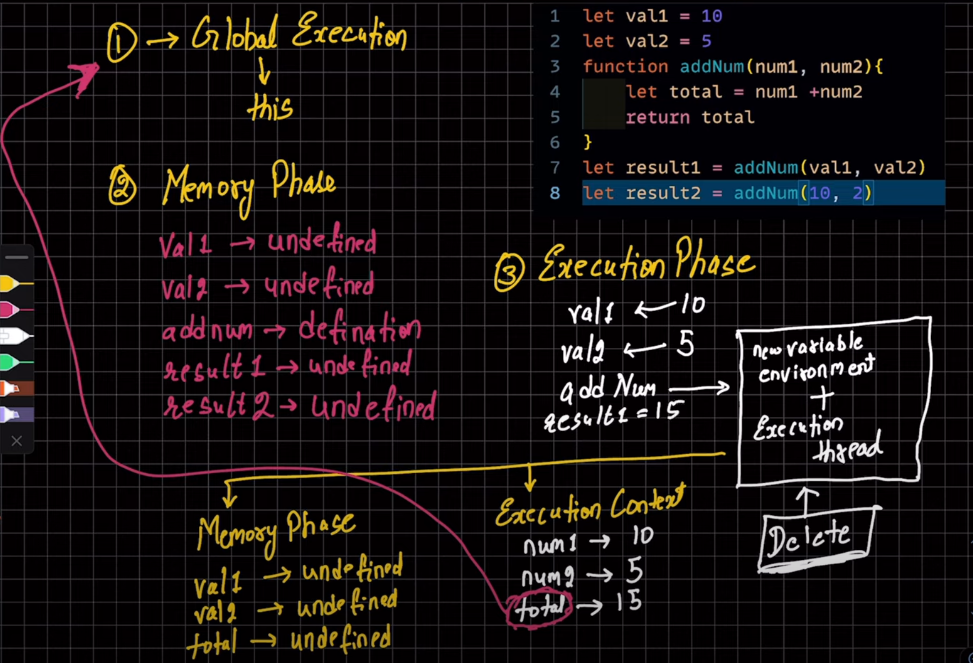 ① → Global Execution
↓
this
1 let val1 = 10
2 let val2 = 5
3 function addNum(num1, num2){
4 let total = num1 +num2
5 return total
6 }
7 let result1 = addNum(val1, val2)
8 let result2 = addNum(10, 2)
② Memory Phase
Val1 → undefined
val2 → undefined
addnum → defination
result1 → undefined
result2 → undefined
③ Execution Phase
val1 ← 10
val2 ← 5
add Num →
result1 = 15
new variable
environment
+
Execution
thread
Delete
Memory Phase
val1 → undefined
val2 → undefined
total → undefined
Execution Context
num1 → 10
num2 → 5
total → 15